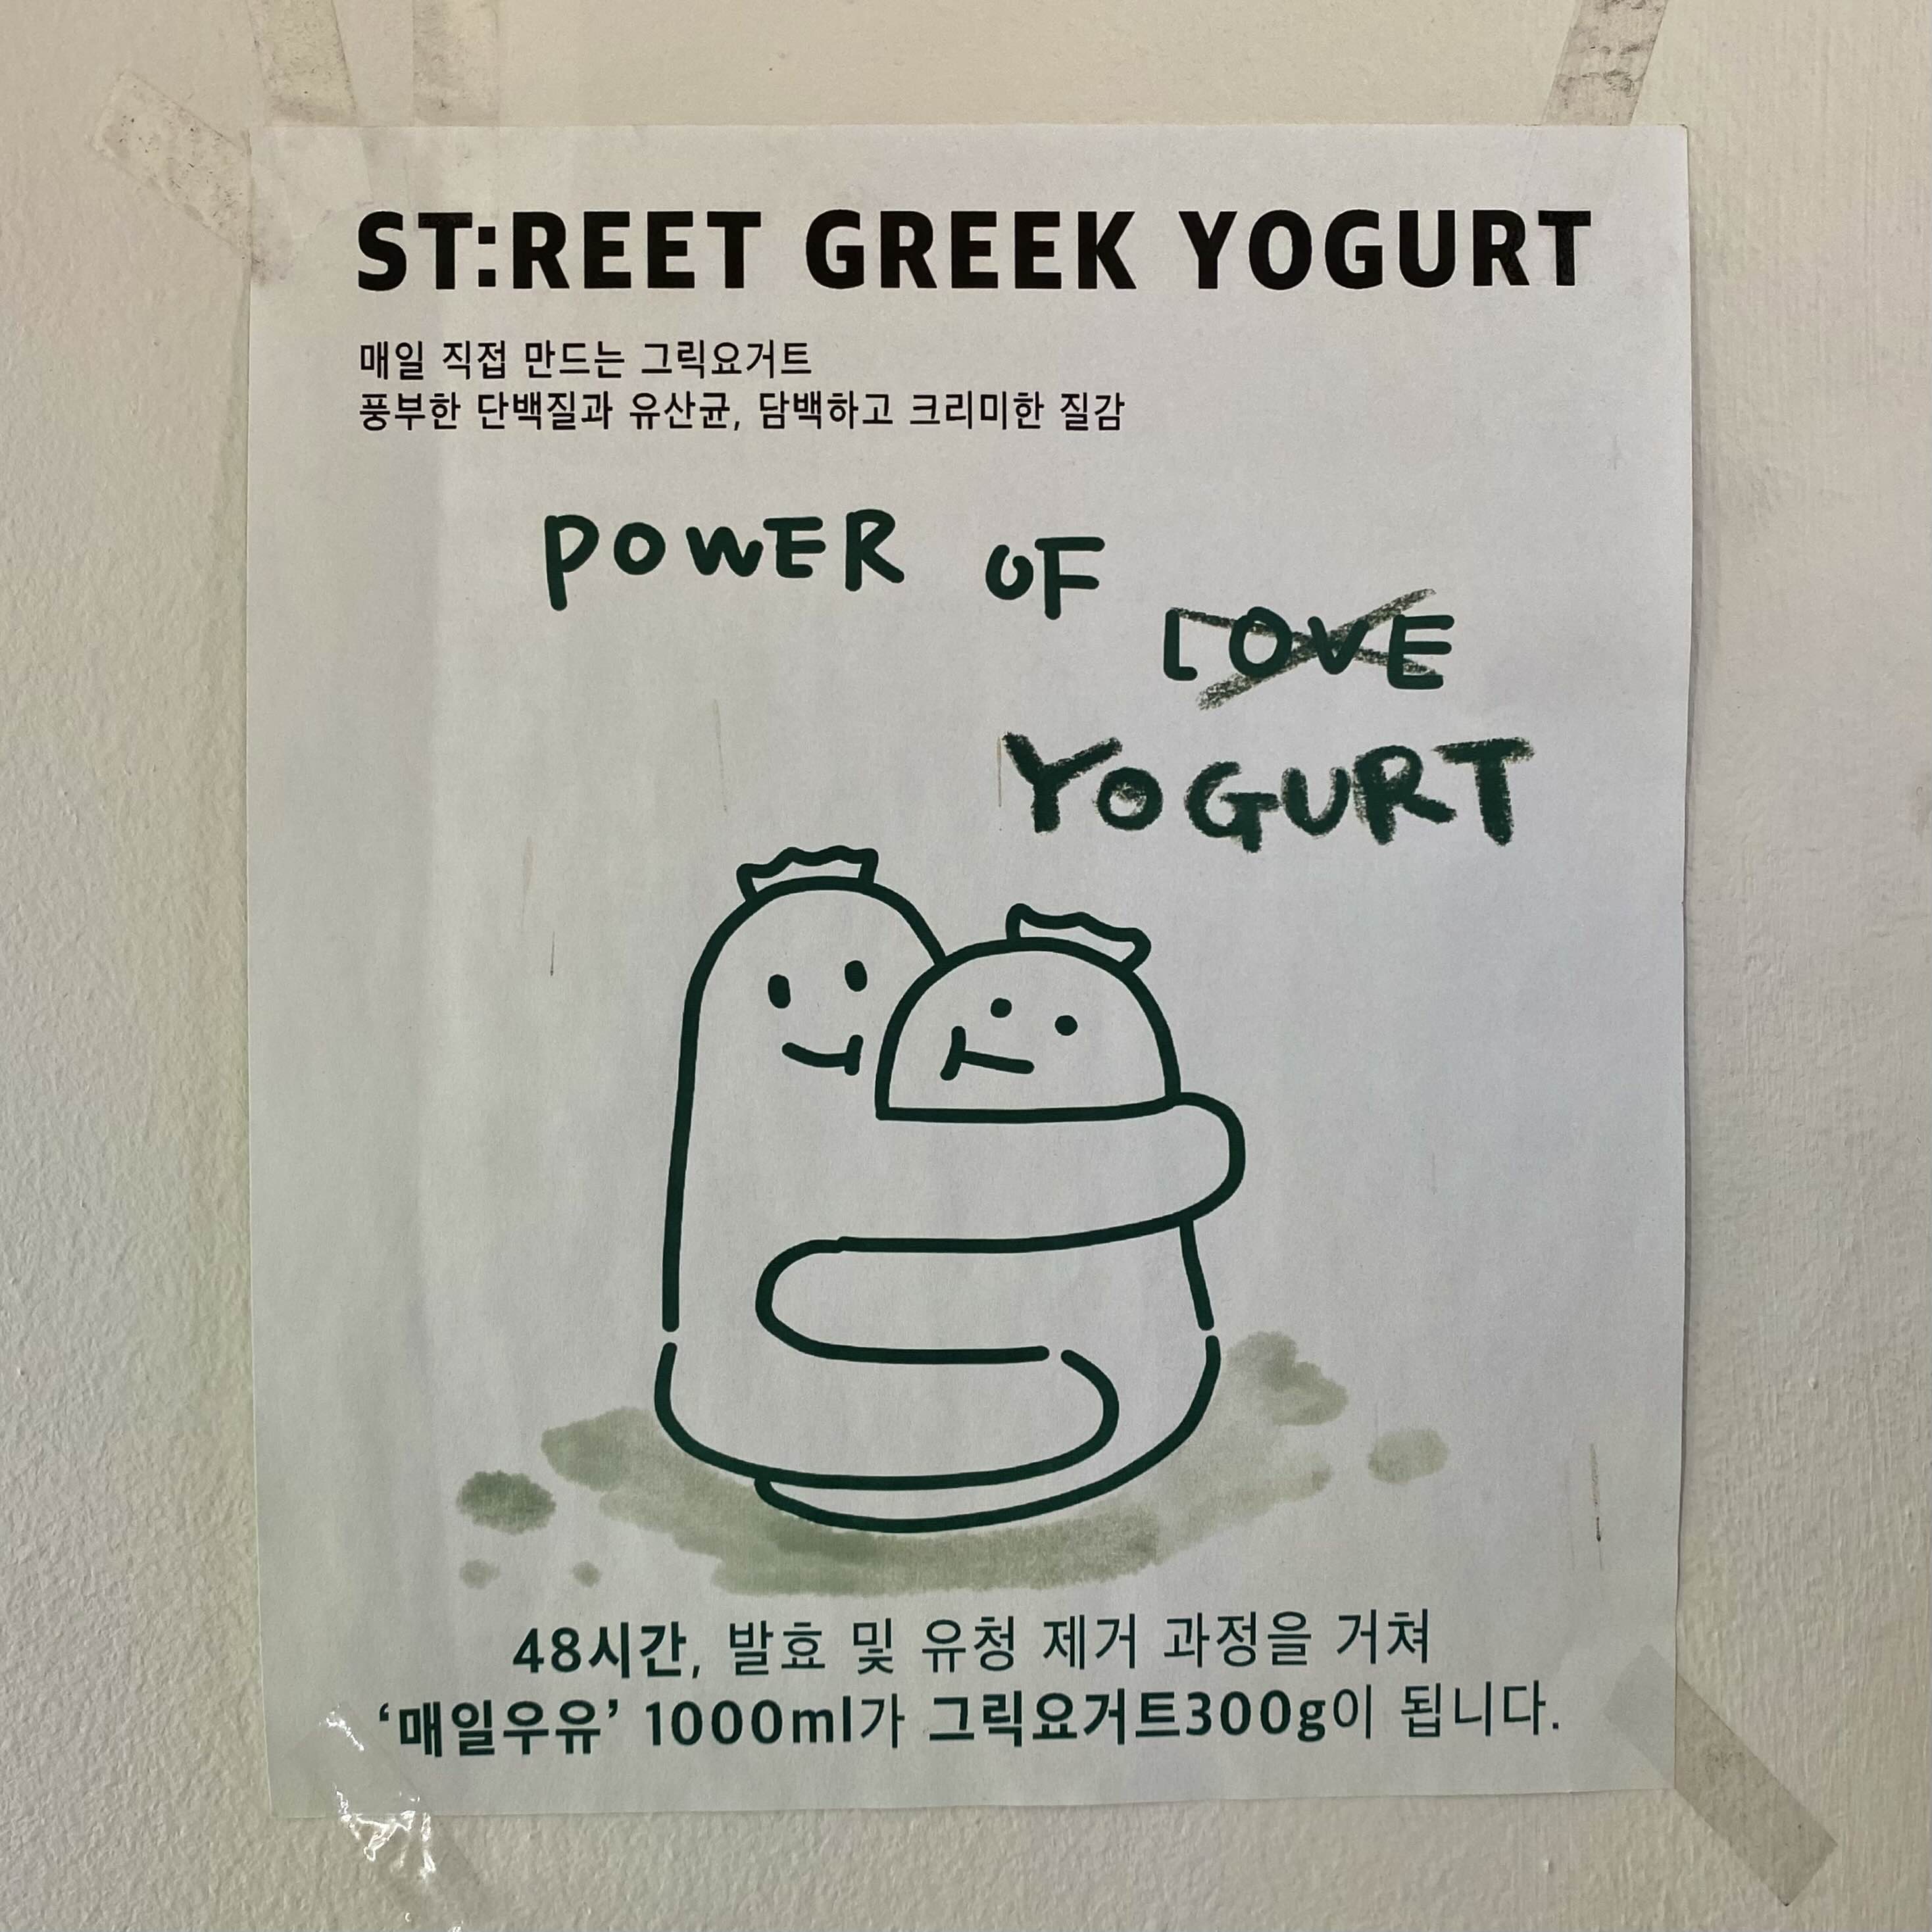 ST:REET GREEK YOGURT
매일 직접 만드는 그릭요거트
풍부한 단백질과 유산균, 담백하고 크리미한 질감
POWER OF
LOVE
YOGURT
48시간, 발효 및 유청 제거 과정을 거쳐
‘매일우유’ 1000ml가 그릭요거트300g이 됩니다.